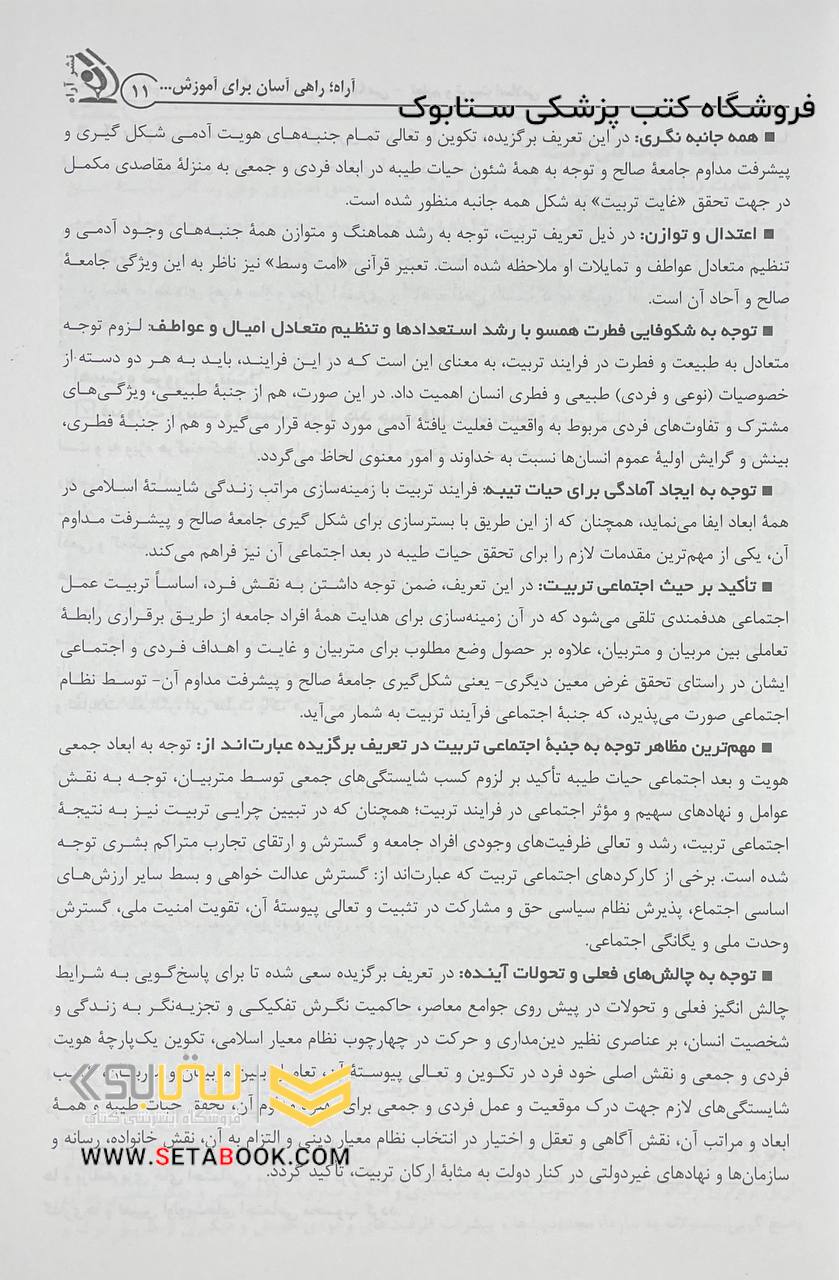 نشر آراه
۱۱
آراه؛ راهی آسان برای آموزش...
فروشگاه کتب پزشکی ستابوک
■ همه جانبه نگری: در این تعریف برگزیده، تکوین و تعالی تمام جنبه‌های هویت آدمی شکل گیری و
پیشرفت مداوم جامعهٔ صالح و توجه به همهٔ شئون حیات طیبه در ابعاد فردی و جمعی به منزلهٔ مقاصدی مکمل
در جهت تحقق «غایت تربیت» به شکل همه جانبه منظور شده است.
■ اعتدال و توازن: در ذیل تعریف تربیت، توجه به رشد هماهنگ و متوازن همهٔ جنبه‌های وجود آدمی و
تنظیم متعادل عواطف و تمایلات او ملاحظه شده است. تعبیر قرآنی «امت وسط» نیز ناظر به این ویژگی جامعهٔ
صالح و آحاد آن است.
■ توجه به شکوفایی فطرت همسو با رشد استعدادها و تنظیم متعادل امیال و عواطف: لزوم توجه
متعادل به طبیعت و فطرت در فرایند تربیت، به معنای این است که در این فرایند، باید به هر دو دسته از
خصوصیات (نوعی و فردی) طبیعی و فطری انسان اهمیت داد. در این صورت، هم از جنبهٔ طبیعی، ویژگی‌های
مشترک و تفاوت‌های فردی مربوط به واقعیت فعلیت یافتهٔ آدمی مورد توجه قرار می‌گیرد و هم از جنبهٔ فطری،
بینش و گرایش اولیهٔ عموم انسان‌ها نسبت به خداوند و امور معنوی لحاظ می‌گردد.
■ توجه به ایجاد آمادگی برای حیات تیبه: فرایند تربیت با زمینه‌سازی مراتب زندگی شایستهٔ اسلامی در
همهٔ ابعاد ایفا می‌نماید، همچنان که از این طریق با بسترسازی برای شکل گیری جامعهٔ صالح و پیشرفت مداوم
آن، یکی از مهم‌ترین مقدمات لازم را برای تحقق حیات طیبه در بعد اجتماعی آن نیز فراهم می‌کند.
■ تأکید بر حیث اجتماعی تربیت: در این تعریف، ضمن توجه داشتن به نقش فرد، اساساً تربیت عمل
اجتماعی هدفمندی تلقی می‌شود که در آن زمینه‌سازی برای هدایت همهٔ افراد جامعه از طریق برقراری رابطهٔ
تعاملی بین مربیان و متربیان، علاوه بر حصول وضع مطلوب برای متربیان و غایت و اهداف فردی و اجتماعی
ایشان در راستای تحقق غرض معین دیگری- یعنی شکل‌گیری جامعهٔ صالح و پیشرفت مداوم آن- توسط نظام
اجتماعی صورت می‌پذیرد، که جنبهٔ اجتماعی فرآیند تربیت به شمار می‌آید.
■ مهم‌ترین مظاهر توجه به جنبهٔ اجتماعی تربیت در تعریف برگزیده عبارت‌اند از: توجه به ابعاد جمعی
هویت و بعد اجتماعی حیات طیبه تأکید بر لزوم کسب شایستگی‌های جمعی توسط متربیان، توجه به نقش
عوامل و نهادهای سهیم و مؤثر اجتماعی در فرایند تربیت؛ همچنان که در تبیین چرایی تربیت نیز به نتیجهٔ
اجتماعی تربیت، رشد و تعالی ظرفیت‌های وجودی افراد جامعه و گسترش و ارتقای تجارب متراکم بشری توجه
شده است. برخی از کارکردهای اجتماعی تربیت که عبارت‌اند از: گسترش عدالت خواهی و بسط سایر ارزش‌های
اساسی اجتماع، پذیرش نظام سیاسی حق و مشارکت در تثبیت و تعالی پیوستهٔ آن، تقویت امنیت ملی، گسترش
وحدت ملی و یگانگی اجتماعی.
■ توجه به چالش‌های فعلی و تحولات آینده: در تعریف برگزیده سعی شده تا برای پاسخ‌گویی به شرایط
چالش انگیز فعلی و تحولات در پیش روی جوامع معاصر، حاکمیت نگرش تفکیکی و تجزیه‌نگر به زندگی و
شخصیت انسان، بر عناصری نظیر دین‌مداری و حرکت در چهارچوب نظام معیار اسلامی، تکوین یک‌پارچهٔ هویت
فردی و جمعی و نقش اصلی خود فرد در تکوین و تعالی پیوستهٔ آن، تعامل بین مربیان و
شایستگی‌های لازم جهت درک موقعیت و عمل فردی و جمعی برای مداوم آن، تحقق حیات طیبه و همهٔ
ابعاد و مراتب آن، نقش آگاهی و تعقل و اختیار در انتخاب نظام معیار دینی و التزام به آن، نقش خانواده، رسانه و
سازمان‌ها و نهادهای غیردولتی در کنار دولت به مثابهٔ ارکان تربیت، تأکید گردد.
ستابوک
فروشگاه اینترنتی کتاب
WWW.SETABOOK.COM